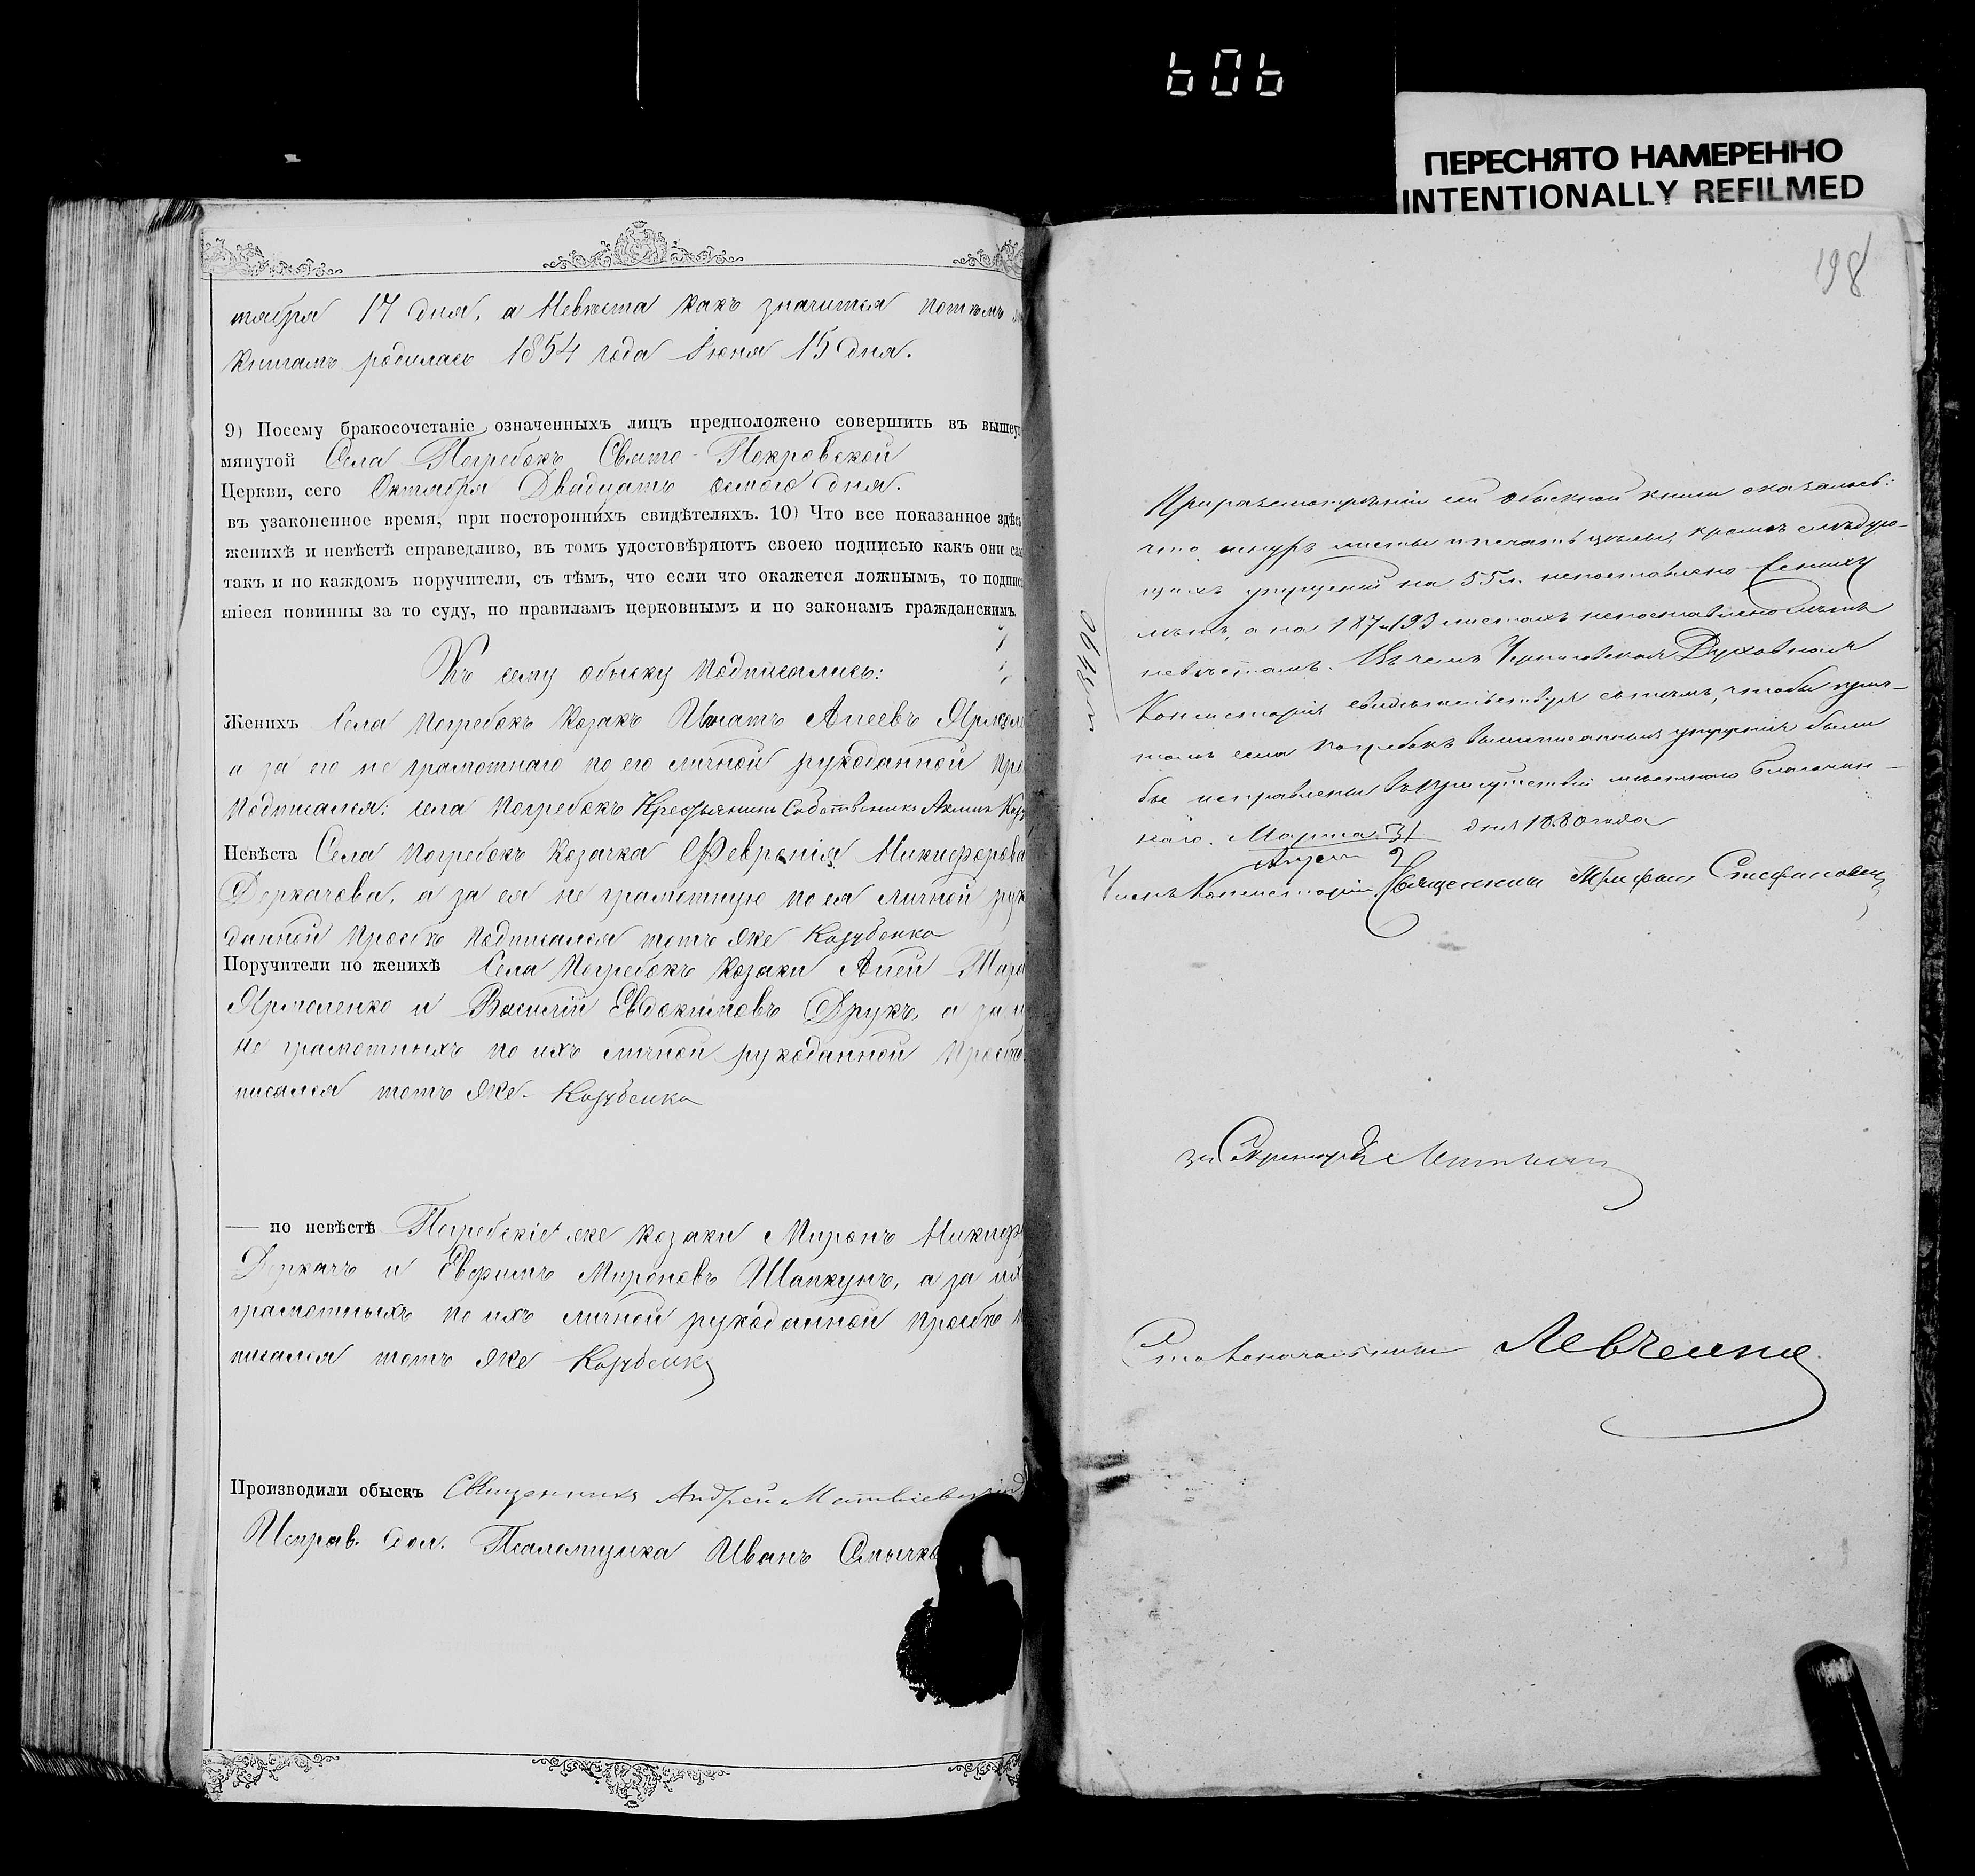 606
ПЕРЕСНЯТО НАМЕРЕННО
INTENTIONALLY REFILMED
198
тября 17 дня, а Невѣста какъ значится потѣмъ
книгамъ родилась 1854 года Іюня 15 дня.
9) Посему бракосочетаніе означенныхъ лицъ предположено совершить въ вышеу
мянутой Села Погребокъ Свято-Покровской
Церкви, сего Октября Двадцать осмого дня.
въ узаконенное время, при постороннихъ свидѣтеляхъ. 10) Что все показанное здѣсь
женихѣ и невѣстѣ справедливо, въ томъ удостовѣряютъ своею подписью какъ они са
такъ и по каждомъ поручители, съ тѣмъ, что если что окажется ложнымъ, то подпис
шіеся повинны за то суду, по правиламъ церковнымъ и по законамъ гражданскимъ.
Къ сему обыску подписались:
Женихъ Села Погребокъ козакъ Игнатъ Агеевъ Ярмол
а за его не грамотнаго по его личной рукоданной про
подписался: села Погребокъ Крестьянинъ Собственникъ
Невѣста Села Погребокъ козачка Февронія Никифорова
Деркачова, а за ея не грамотную по ея личной рук
данной просьбѣ подписался тотъ же Козубенко
Поручители по женихѣ Села Погребокъ козаки Агей
Ярмоленко и Василій Евдокимовъ Друкъ, а за и
не грамотныхъ по ихъ личной рукоданной просьбѣ
писался тотъ же. Козубенко
— по невѣстѣ Погребскіе же козаки Миронъ Никиф
Деркачъ и Евфимъ Мироновъ Шапкунъ, а за их
грамотныхъ по ихъ личной рукоданной просьбѣ п
писался тотъ же Козубенко
Производили обыскъ Священникъ Андрей Матвіевскій
Исправ. дол. Псаломщика Иванъ Смычк
При разсмотреніи сей обыскной книги оказалось:
что шнуръ листы и печать цѣлы, кромѣ слѣдую-
щихъ упущеній на 55 л. непоставлено Жениху
лѣтъ, а на 187 и 193 листахъ непоставлено лѣтъ
невѣстамъ. В чемъ Черниговская Духовная
Консисторія свидѣтельствуя съ тѣмъ, чтобы прич-
томъ села Погребокъ вышеписанныя упущенія были
бы исправлены въ присутствіи мѣстнаго благочин-
наго. Марта 31 дня 1880 года
Апрел 2
Членъ Консисторіи Священникъ Трифонъ Стефановскій
за Секретаря
Столоначальникъ Левченко